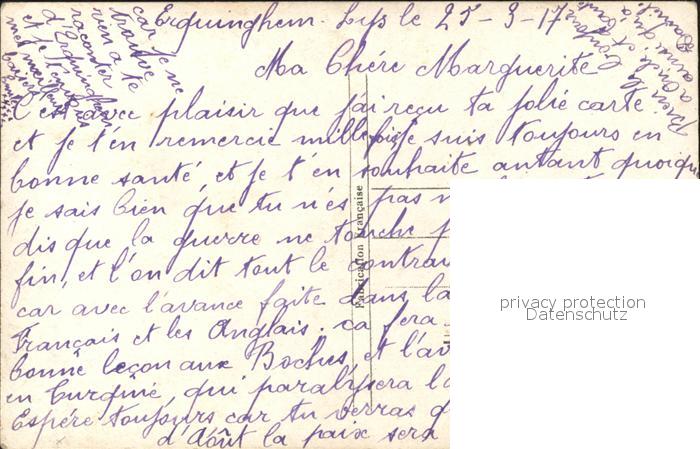 Erquinghem. Lys le 25-3-17
Ma Chére Marguerite
C'est avec plaisir que j'ai reçu ta jolie carte
et je t'en remercie mille fois je suis toujours en
bonne santé, et je t'en souhaite autant quoique
je sais bien que tu n'es pas
dis que la guerre ne touche
fin, et l'on dit tout le
car avec l'avance faite dans la
Français et les Anglais. ca fera
bonne leçon aux Boches, et
en qui paralysera
Espére toujours car tu verras
d'Août la paix sera
car je ne
trouve
rien a te
raconter
d'Erquinghem
et je
Bien le bonjour
a oncle et tante
ainsi qu'a
Fabrication Française
privacy protection
Datenschutz